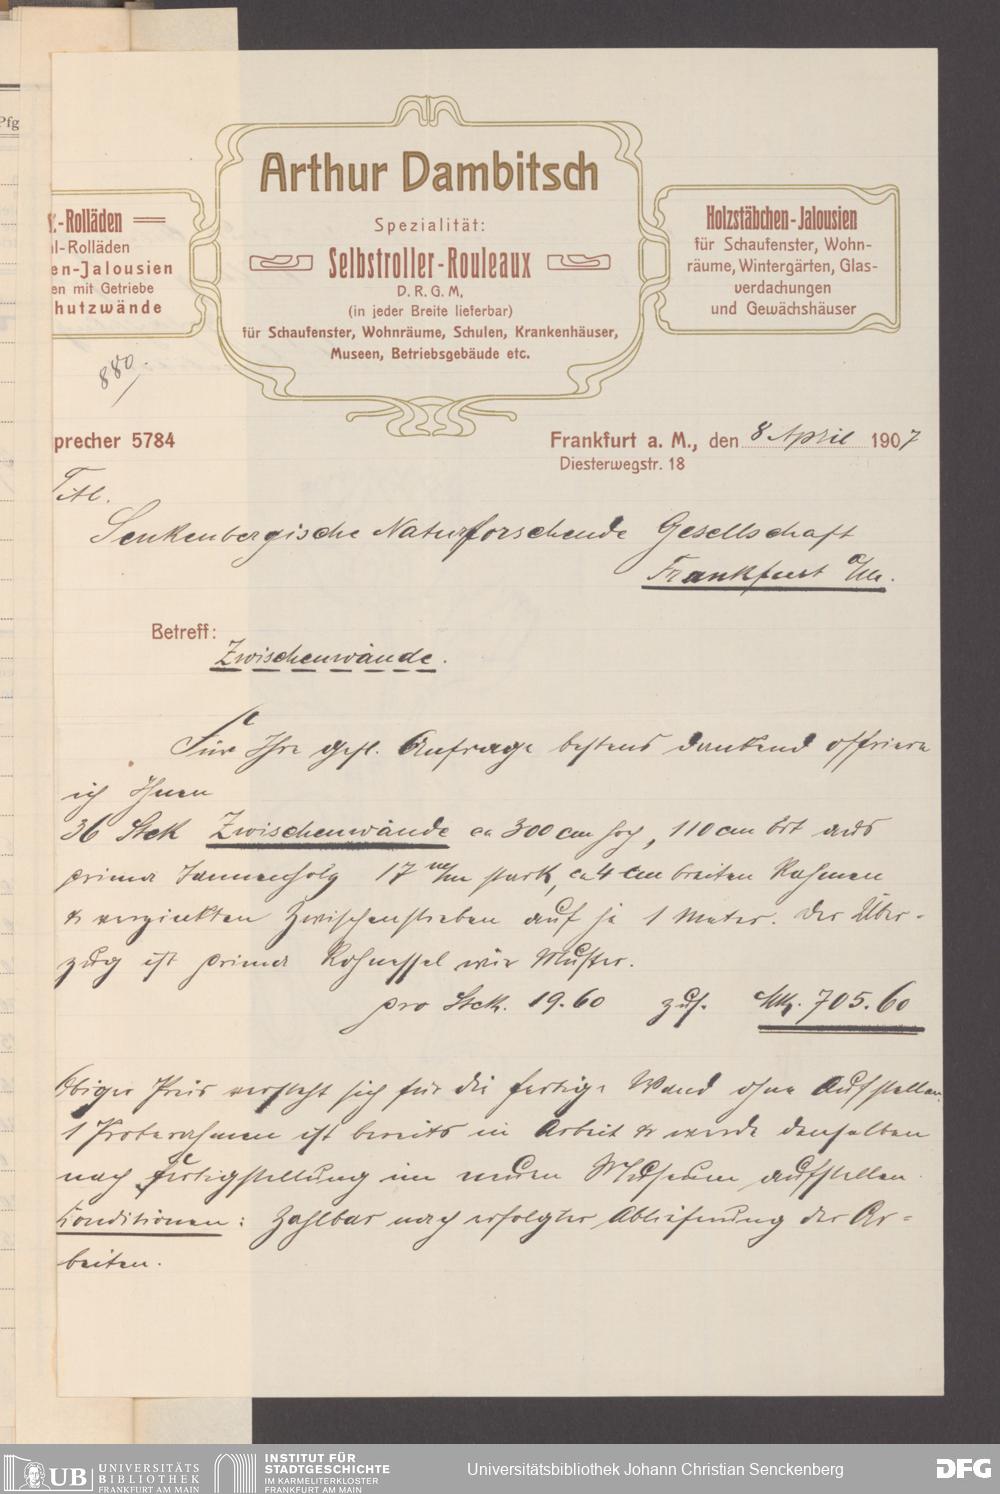 Pfg
Arthur Dambitsch
Spezialität:
Selbstroller-Rouleaux
D. R. G. M.
(in jeder Breite lieferbar)
für Schaufenster, Wohnräume, Schulen, Krankenhäuser,
Museen, Betriebsgebäude etc.
-Rolläden
l-Rolläden
en-Jalousien
en mit Getriebe
hutzwände
Holzstäbchen-Jalousien
für Schaufenster, Wohn-
räume, Wintergärten, Glas-
verdachungen
und Gewächshäuser
880.
precher 5784
Frankfurt a. M., den 8 April 1907
Diesterwegstr. 18
Titl.
Senkenbergische Naturforschende Gesellschaft
Frankfurt a/M.
Betreff:
Zwischenwände.
Für Ihre gefl. Anfrage bestens dankend offeriere
ich Ihnen
36 Stck Zwischenwände ca 300 cm hoch, 110 cm brt aus
prima Tannenholz 17 m/m stark, ca 4 cm breiten Rahmen
& verzinkten Zwischenstreben auf je 1 Meter. Der Über-
zug ist prima Rohnessel wie Muster.
pro Stck. 19.60 zus. Mk. 705.60
Obiger Preis versteht sich für die fertige Wand ohne Aufstellen.
1 Proberahmen ist bereits in Arbeit & werde denselben
nach Fertigstellung im neuen Museum aufstellen.
Conditionen: Zahlbar nach erfolgter Ablieferung der Ar-
beiten.
UB UNIVERSITÄTS
BIBLIOTHEK
FRANKFURT AM MAIN
INSTITUT FÜR
STADTGESCHICHTE
IM KARMELITERKLOSTER
FRANKFURT AM MAIN
Universitätsbibliothek Johann Christian Senckenberg
DFG